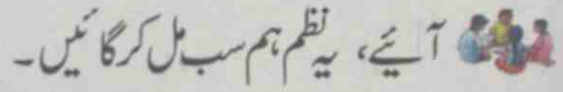 آیئے، یہ نظم ہم سب مل کر گائیں۔